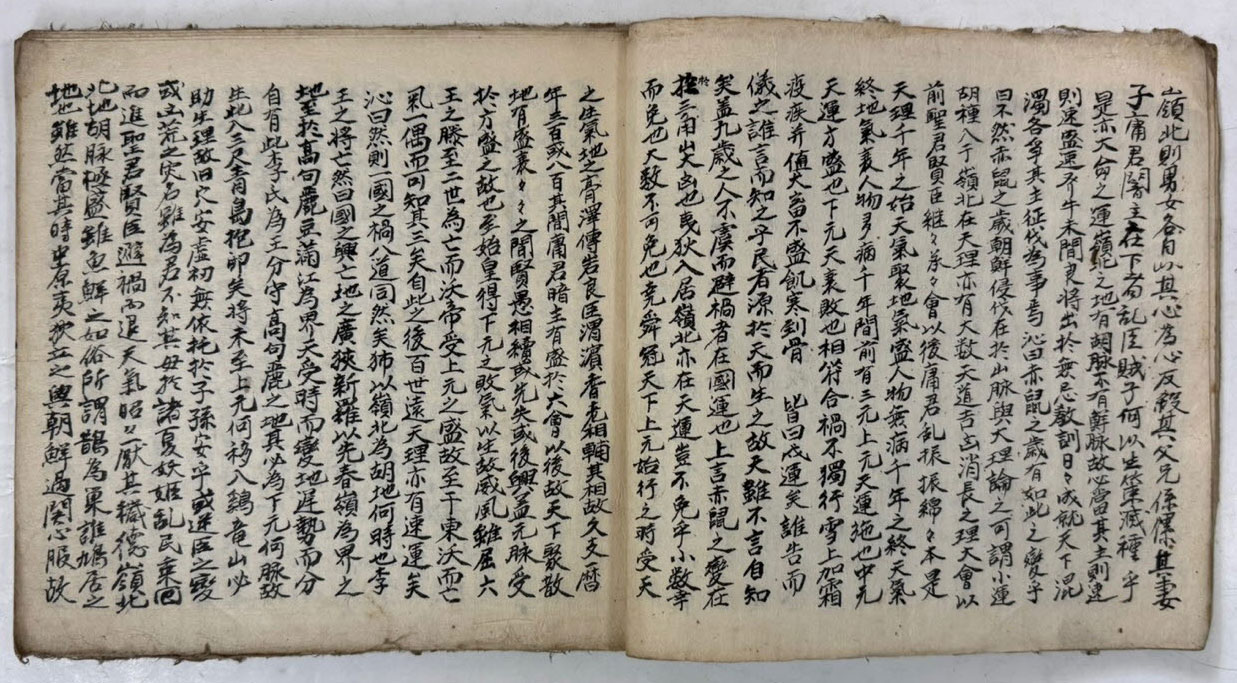 嶺北則男女各自以其心爲心反殺其父兄係傫其妻
子庸君闇主在下而乱臣賊子何以生筐蔵種乎
是亦大命之運嶺北之地有胡脉不有鮮脉故必當其主則運
則速盛速矣牛末間良將出於無忌教訓日々成就天下混
濁各爭其主征伐爲事焉沁曰赤鼠之歲有如此之變乎
曰不然赤鼠之歲朝鮮侵伐在於山脉與大理論之可謂小運
胡種入于嶺北在天理亦有大数天道吉凶消長之理大會以
前聖君賢臣継々承々會以後庸君乱振振綿々本是
天理千年之始天氣聚地氣盛人物無病千年之終天氣
終地氣衰人物多病千年間前有三元上元天運施也中元
天運方盛也下元天衰敗也相符合禍不獨行雪上加霜
疫疾并値大畜不盛飢寒到骨 皆曰咸運矣誰告而
儀之誰言而知之乎民者源於天而生之故天雖不言自知
矣盖九歲之人不虞而避禍者在國運也上言赤鼠之變在
於三用出大凶也夷狄入居嶺北亦在天運豈不免乎小数幸
而免也大数不可免也堯舜冠天下上元始行之時受天
之生氣地之膏澤傳岩良臣渭濱香老相輔其相故久支一曆
年五百或八百其間庸君暗主有盛於大會以後故天下聚散
地有盛衰々々之間賢愚相續或先失或後興盖元脉受
於方盛之故也至始皇得下元之敗氣以生故威風雖屈六
王之滕至二世爲亡而沃帝受上元之盛故至于東沃而亡
氣一偶而可知其三矣自此之後百世遠天理亦有速運矣
沁曰然則一國之禍八道同然矣㳍以嶺北爲胡地何時也李
王之將亡然曰國之興亡地之廣狹新羅以先春嶺爲界之
地至於高句麗豆滿江爲界天受時而變地遲勢而分
自有此李氏爲王分守高句麗之地其必爲下元何脉故
生此八三尺青鳥抱卵矣將末至上元何移八鷄竜山必
助生理故旧穴安虛初無依托於子孫安乎或逆臣之變
或立荒之灾名雖爲君不知其母於諸夏妖姬乱民棄回
而進聖君賢臣避禍而退天氣昭々厭其穢德嶺北
北地胡脉極盛雖魚鮮之如俗所謂鵲爲巢誰鳩居之
地也雖然當其時中原夷狄立之與朝鮮過関心服故